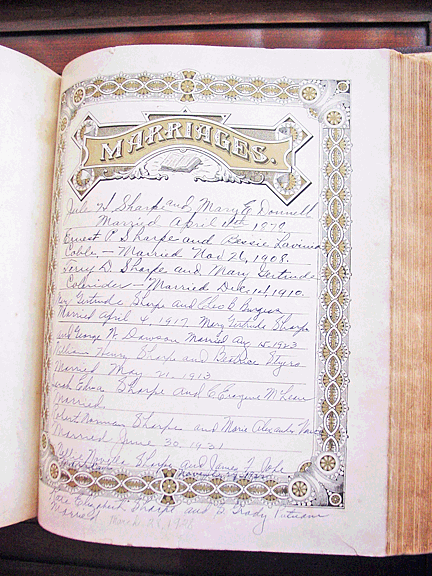 MARRIAGES.
H Sharpe and Mary E Donnell
Married April 11th 1878
Ernest P. Sharpe and Bessie Lavinia
Coble — Married Nov 26, 1908.
D. Sharpe and Mary Gertrude
— Married Dec 1910.
Gertrude Sharpe and Cleo B
Married April 4, 1917 Mary Gertrude Sharpe
and George W. Dawson Married Aug 15, 1923
William Henry Sharpe and Beatrice
Married May 21, 1913
Sarah Edna Sharpe and C Eugene McLean
Married
Robert Norman Sharpe and Marie Alexander
Married June 30, 1931
Sharpe and James F.
Elizabeth Sharpe and D Grady Putnam
Married March